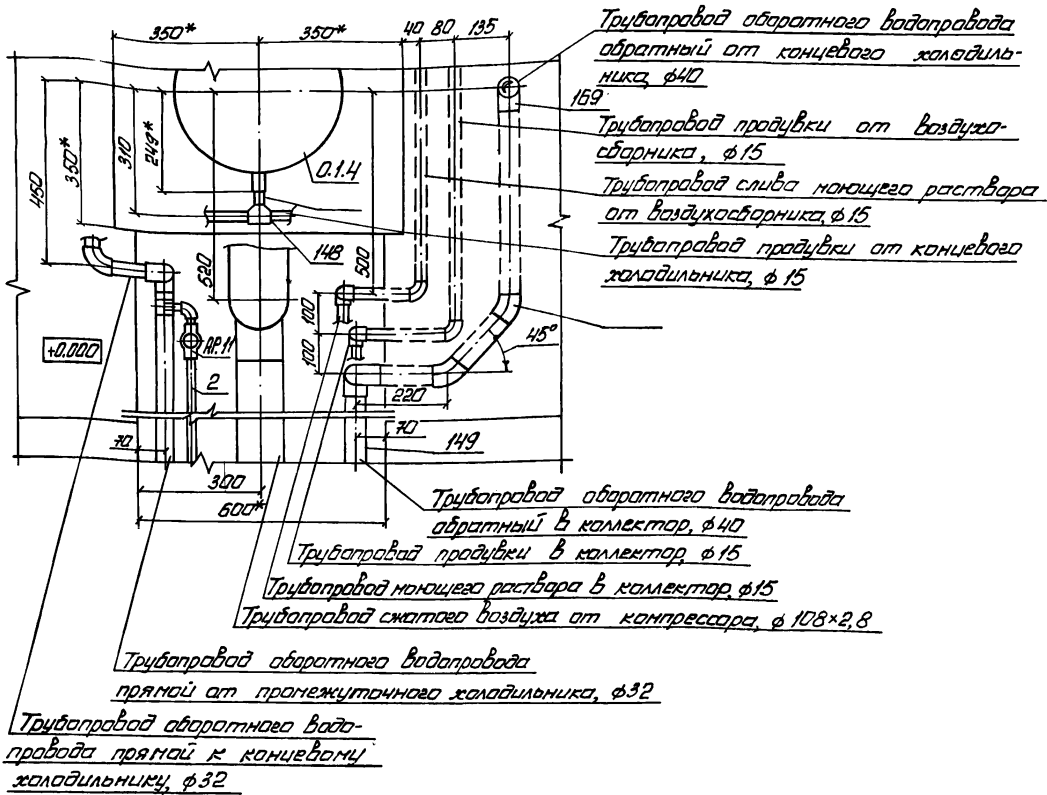 350*
350*
40
80
135
Трубопровод оборотного водопровода
обратный от концевого холодиль-
ника, ф40
169
Трубопровод продувки от воздухо-
сборника, ф15
Трубопровод слива моющего раствора
от воздухосборника, ф15
Трубопровод продувки от концевого
холодильника, ф15
450
350*
310
249*
0.1.4
148
520
500
100
100
45°
+0.000
АР.11
2
220
70
70
149
300
600*
Трубопровод оборотного водопровода
обратный в коллектор, ф40
Трубопровод продувки в коллектор, ф15
Трубопровод моющего раствора в коллектор, ф15
Трубопровод сжатого воздуха от компрессора, ф108×2,8
Трубопровод оборотного водопровода
прямой от промежуточного холодильника, ф32
Трубопровод оборотного водо-
провода прямой к концевому
холодильнику, ф32